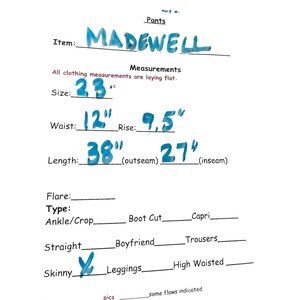 Pants
Item: MADEWELL
Measurements
All clothing measurements are laying flat.
Size: 23
Waist: 12" Rise: 9,5"
Length: 38" (outseam) 27" (inseam)
Flare:
Type:
Ankle/Crop Boot Cut Capri
Straight Boyfriend Trousers
Skinny X Leggings High Waisted
pics some flaws indicated